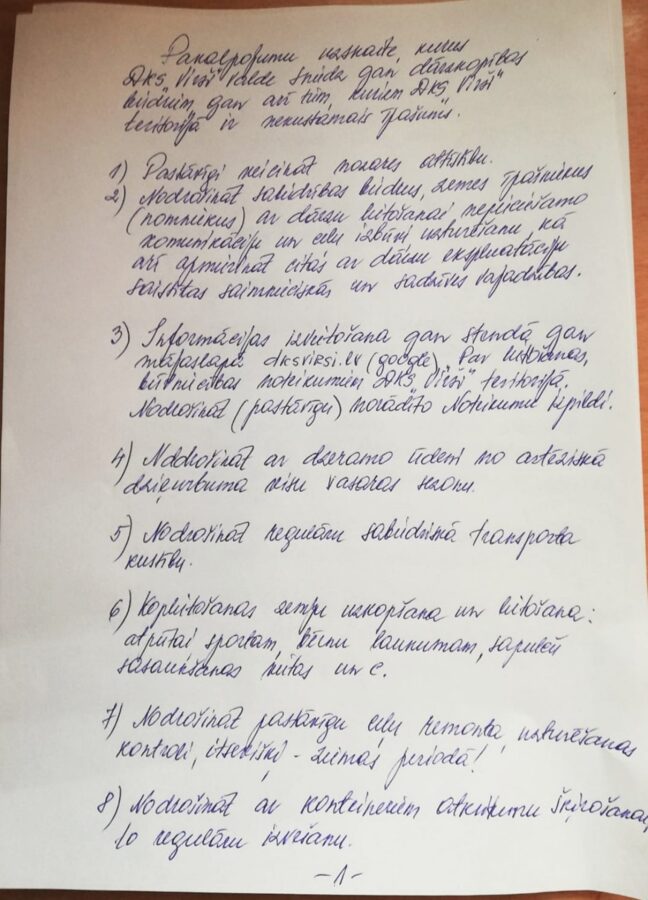 Pakalpojumu uzskaite, kurus
DKS "Virši" valde sniedz gan dārzkopības
biedriem, gan arī tiem, kuriem DKS "Virši"
teritorijā ir nekustāmais īpašums.
1) Pastāvīgi veicināt nozares attīstību.
2) Nodrošināt sabiedrības biedrus, zemes īpašniekus
(nomniekus) ar dārzu lietošanai nepieciešamo
komunikāciju un ceļu izbūvi uzturēšanu, kā
arī apmierināt citas ar dārzu ekspluatāciju
saistītas saimnieciskās un sadzīves vajadzības.
3) Informācijas izvietošana gan stendā gan
mājaslapā dksvirsi.lv (google), "Par lietošanas,
būvniecības noteikumiem DKS "Virši" teritorijā.
Nodrošināt (pastāvīgu) norādīto Noteikumu izpildi.
4) Nodrošināt ar dzeramo ūdeni no artēziskā
dziļurbuma visu vasaras sezonu.
5) Nodrošināt regulāru sabiedriskā transporta
kustību.
6) Koplietošanas zemju uzkopšana un lietošana:
atpūtai sportam, bērnu laukumam, sapulču
sasaukšanas vietas un c.
7) Nodrošināt pastāvīgu ceļu remontu, uzturēšanas
kontroli, itsevišķi - ziemas periodā!
8) Nodrošināt ar konteineriem atkritumu šķirošanai,
to regulāru izvešanu.
-1-